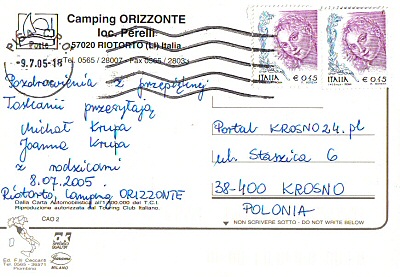 Camping ORIZZONTE
loc. Perelli
57020 RIOTORTO (LI) Italia
Tel. 0565 / 28007 - Fax 0565 / 28033
Poste
-9.7.05-18
ITALIA € 0,45
ITALIA € 0,45
Pozdrowienia z przepięknej
Toskanii przesyłają
Michał Krupa
Joanna Krupa
z rodzicami
8.07.2005.
Riotorto, Camping ORIZZONTE
Portal KROSNO24.pl
ul. Staszica 6
38-400 KROSNO
POLONIA
Dalla Carta Automobilistica all'1:200.000 del T.C.I.
Riproduzione autorizzata dal Touring Club Italiano.
CAO 2
NON SCRIVERE SOTTO - DO NOT WRITE BELOW
Ed. F.lli Ceccanti
Tel. 0565 - 36371
Piombino
MILANO